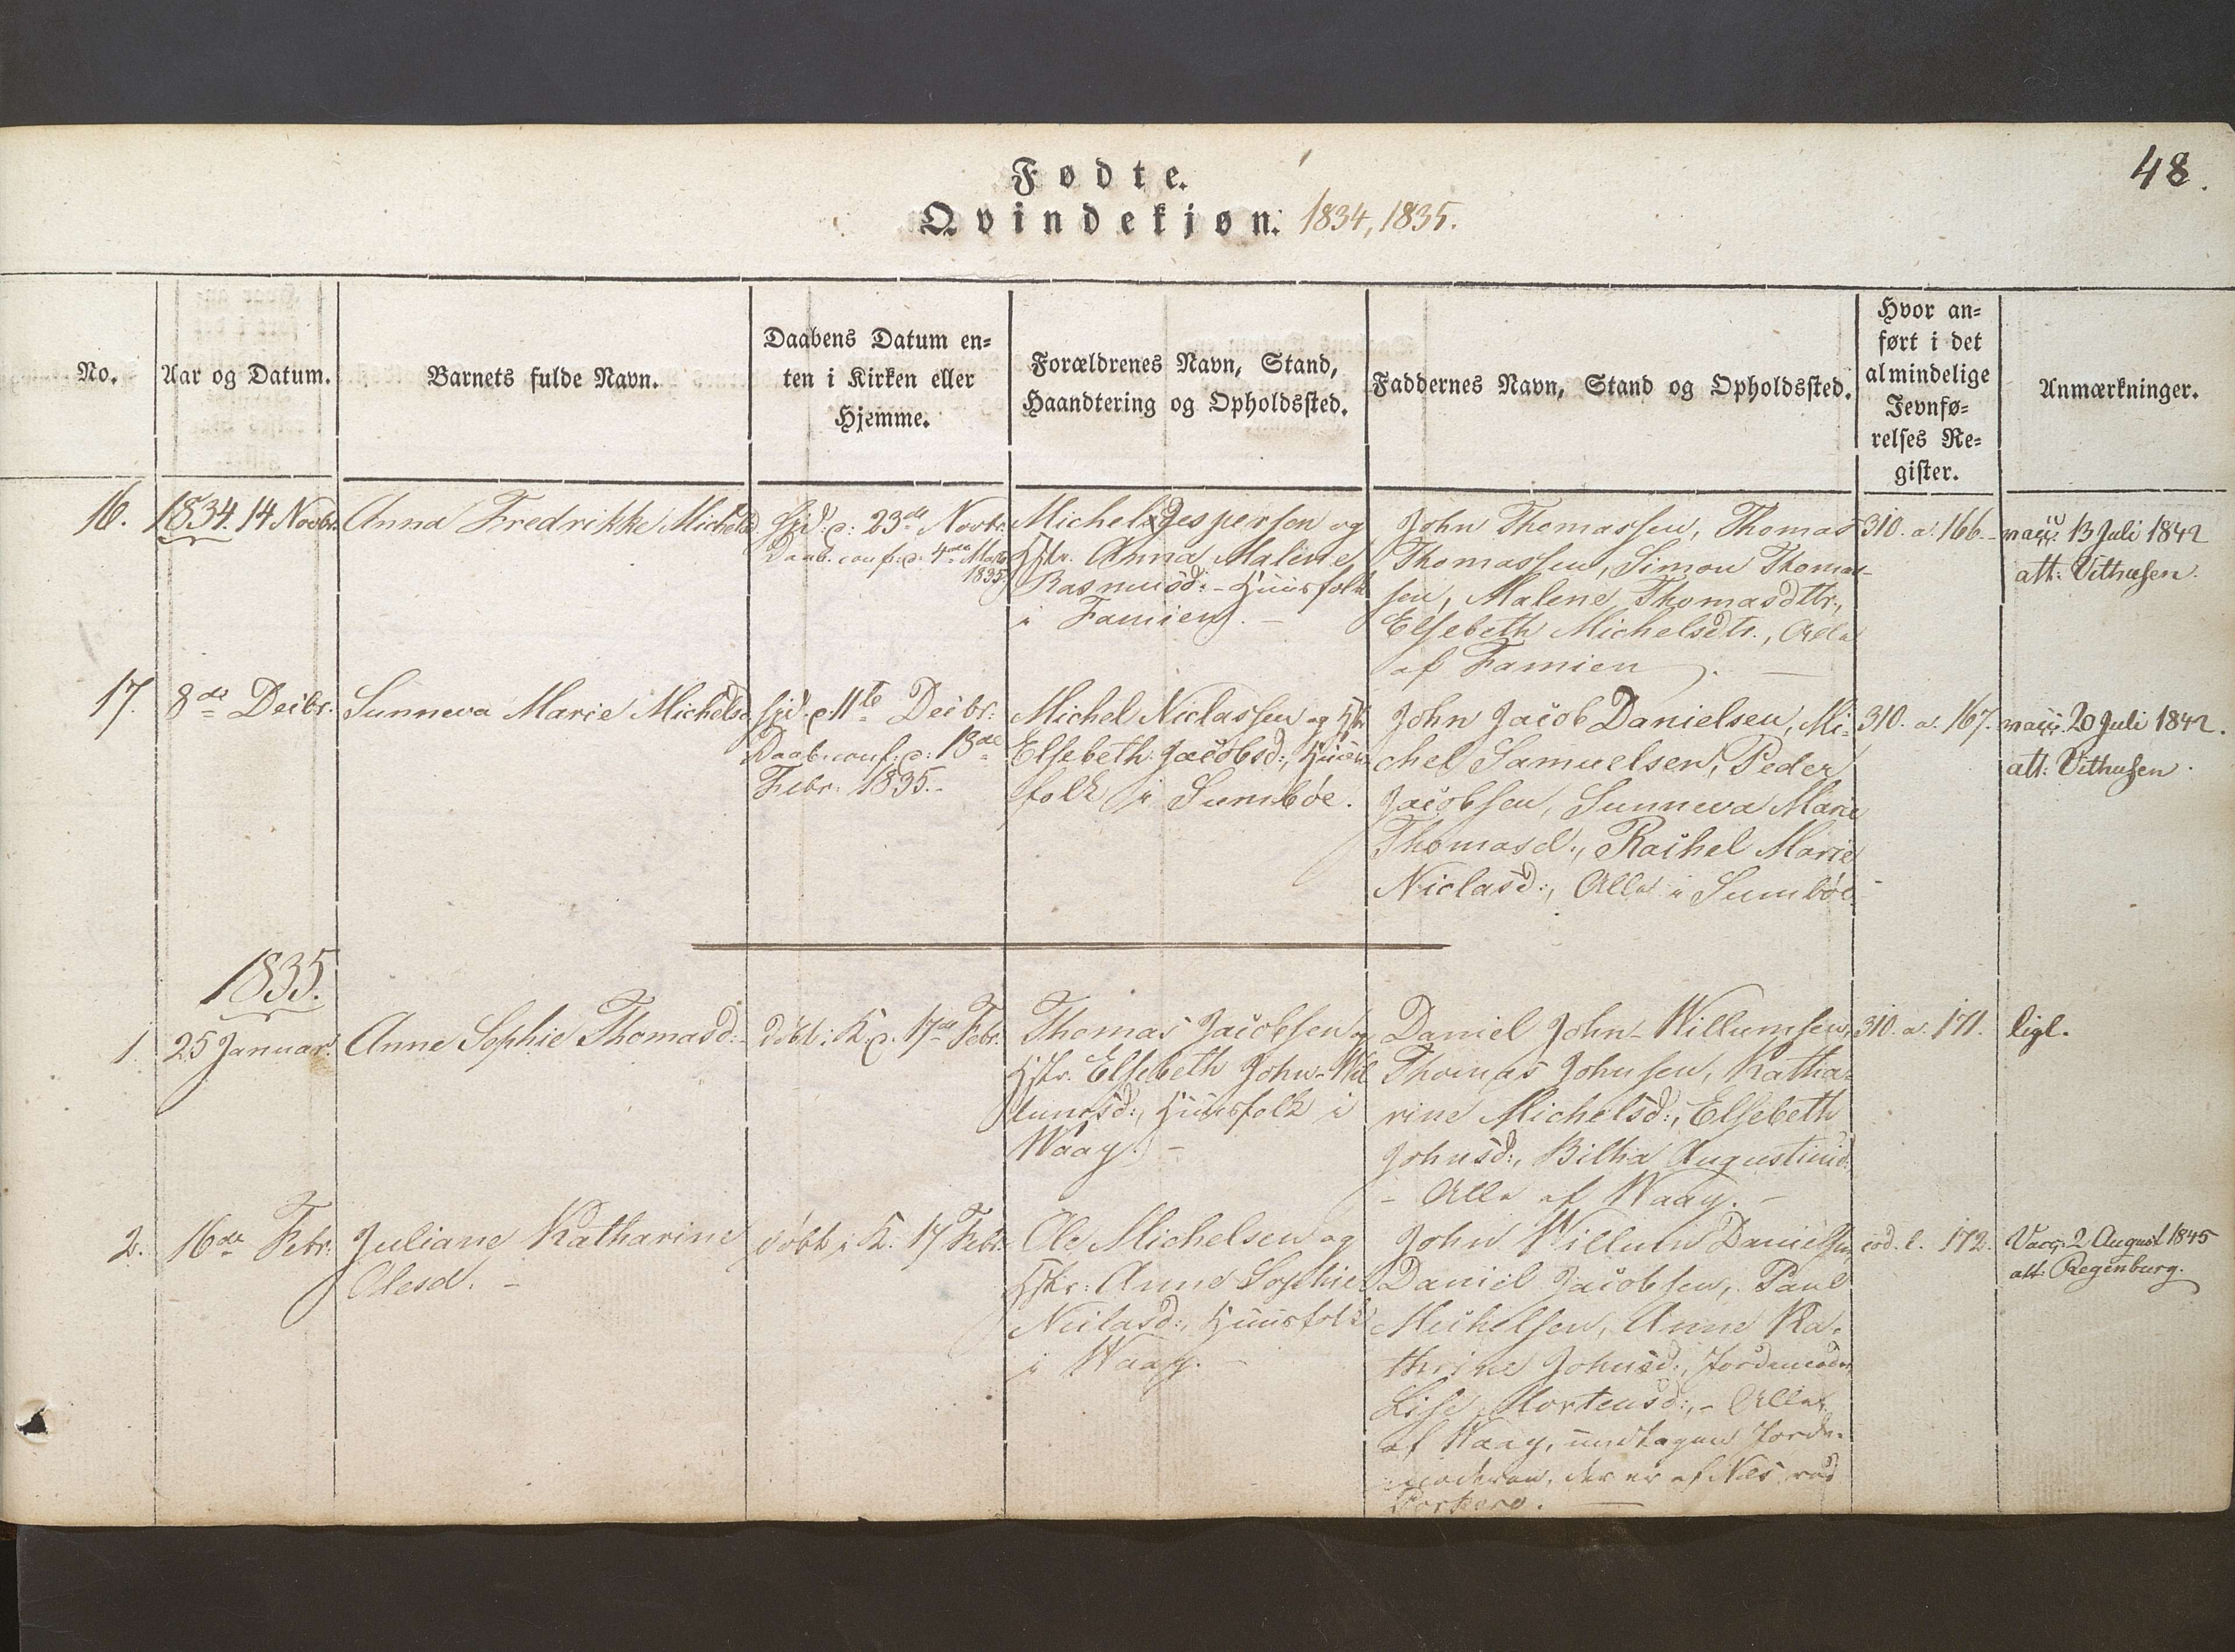 48.
Fødte.
Qvindekjøn. 1834, 1835.
No.
Aar og Datum.
Barnets fulde Navn.
Daabens Datum en-
ten i Kirken eller
Hjemme.
Forældrenes Navn, Stand,
Haandtering og Opholdssted.
Faddernes Navn, Stand og Opholdssted.
Hvor an-
ført i det
almindelige
Jevnfø-
relses Re-
gister.
Anmærkninger.
16.
1834. 14 Novbr.
Anna Fredrikke Michelsd
Hjd: d: 23de Novbr.
Daab. conf: d. 4de Marts
1835.
Michel Jespersen og
Hstr. Anna Malene
Rasmusd: - Huusfolk
i Famien. -
John Thomassen, Thomas
Thomassen, Simon Thomas-
sen, Malene Thomasdttr,
Elsebeth Michelsdtr., Alle
af Famien. -
310. a. 166.
vacc. 13 Juli 1842
att: Vithusen.
17.
8de Decbr.
Sunneva Marie Michelsd
Hjd. d. 11te Decbr:
Daab. conf: d: 13de
Febr. 1835.
Michel Niclassen og Hstr
Elsebeth Jacobsd:, Huus-
folk i Sumbøe.
John Jacob Danielsen, Mi-
chel Samuelsen, Peder
Jacobsen, Sunneva Marie
Thomasd., Rachel Marie
Niclasd:, Alle i Sumbøe.
310. a. 167.
vacc. 20 Juli 1842.
att: Vithusen.
1835.
1.
25 Januar.
Anne Sophie Thomasd. -
Døbt i K. d. 17de Febr.
Thomas Jacobsen og
Hstr. Elsebeth John-Wil
lumsd:, Huusfolk i
Waag. -
Daniel John-Willumsen,
Thomas Johnsen, Katha-
rine Michelsd:, Elsebeth
Johnsd:, Billia Augustinid:
- Alle af Waag. -
310. a. 171.
ligl.
2.
16de Febr.
Juliane Katharine
Olesd. -
døbt i K. 17 Febr.
Ole Michelsen og
Hstr: Anne Sophie
Niclasd:, Huusfolk
i Waag. -
John Willum Danielsen,
Daniel Jacobsen, Paul
Michelsen, Anne Ka-
thrine Johnsd:, Jordemoder
Lise Mortensd:, - Alle
af Waag, undtagen Jorde-
moderen, der er af Næs ved
Porkere. -
eod. l. 172.
Vacc. 2 August 1845
att: Regenburg.